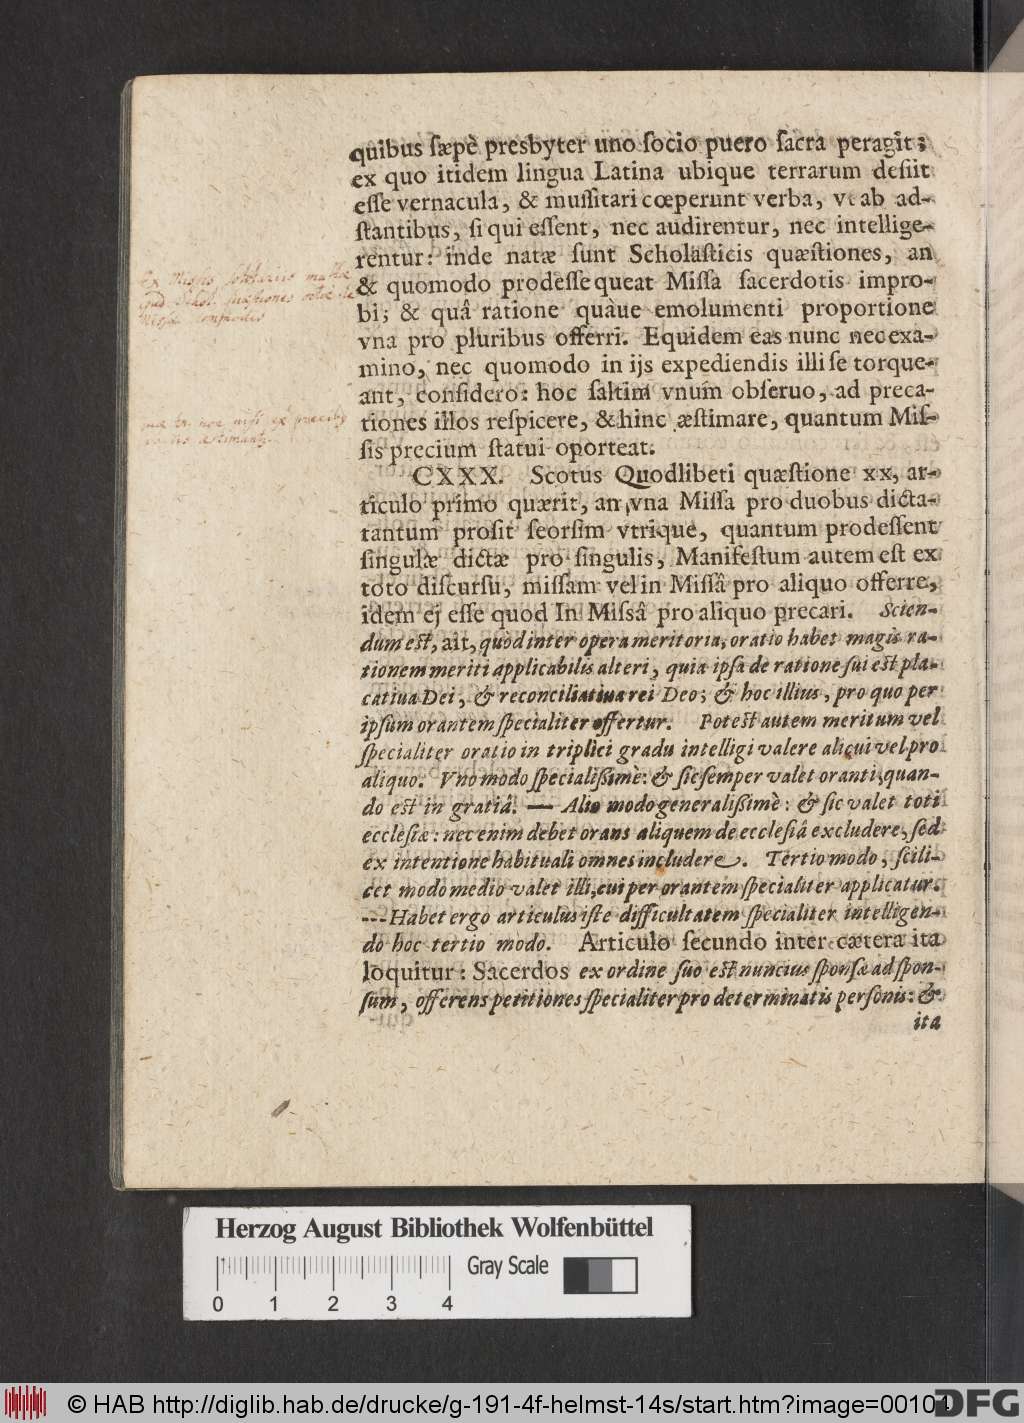 quibus ſæpè presbyter uno ſocio puero ſacra peragit;
ex quo itidem lingua Latina ubique terrarum deſiit
eſſe vernacula, & muſſitari cœperunt verba, vt ab ad-
ſtantibus, ſi qui eſſent, nec audirentur, nec intellige-
rentur: inde natæ ſunt Scholaſticis quæſtiones, an
& quomodo prodeſſe queat Miſſa ſacerdotis impro-
bi; & quâ ratione quaue emolumenti proportione
vna pro pluribus offerri. Equidem eas nunc nec exa-
mino, nec quomodo in ijs expediendis illi ſe torque-
ant, conſidero: hoc ſaltim vnum obſeruo, ad preca-
tiones illos reſpicere, & hinc æſtimare, quantum Miſ-
ſis precium ſtatui oporteat.
CXXX. Scotus Quodlibeti quæſtione xx, ar-
ticulo primo quærit, an vna Miſſa pro duobus dicta-
tantum proſit ſeorſim vtrique, quantum prodeſſent
ſingulæ dictæ pro ſingulis, Manifeſtum autem eſt ex
toto diſcurſu, miſſam vel in Miſſâ pro aliquo offerre,
idem ej eſſe quod In Miſsâ pro aliquo precari. Scien-
dum eſt, ait, quòd inter opera meritoria, oratio habet magis ra-
tionem meriti applicabilis alteri, quia ipſa de ratione ſui eſt pla-
catiua Dei, & reconciliatiua rei Deo; & hoc illius, pro quo per
ipſum orantem ſpecialiter offertur. Poteſt autem meritum vel
ſpecialiter oratio in triplici gradu intelligi valere alicui vel pro
aliquo. Vno modo ſpecialißimè: & ſic ſemper valet oranti, quan-
do eſt in gratiâ. — Alio modo generalißimè: & ſic valet toti
eccleſiæ: nec enim debet orans aliquem de eccleſiâ excludere, ſed
ex intentione habituali omnes includere. Tertio modo, ſcili-
cet modo medio valet illi, cui per orantem ſpecialiter applicatur.
--- Habet ergo articulus iſte difficultatem ſpecialiter intelligen-
do hoc tertio modo. Articulo ſecundo inter cætera ita
loquitur: Sacerdos ex ordine ſuo eſt nuncius ſponſæ ad ſpon-
ſum, offerens petitiones ſpecialiter pro determinatis perſonis: &
ita
Ex Missis
Qud Schol. quæstiones
Missa
non nisi ex precibus
Herzog August Bibliothek Wolfenbüttel
Gray Scale
0 1 2 3 4
© HAB http://diglib.hab.de/drucke/g-191-4f-helmst-14s/start.htm?image=00104
DFG